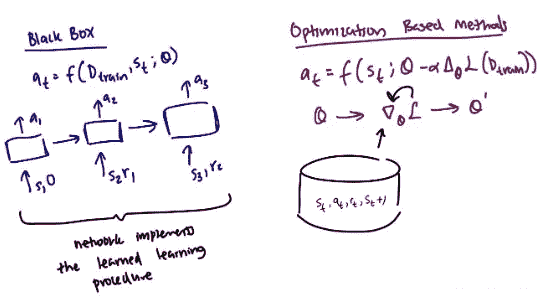 Black Box
a_t = f(D_train, s_t; θ)
a_1 a_2 a_3
s_1 0 s_2 r_1 s_3, r_2
network implements
the learned learning
procedure
Optimization Based Methods
a_t = f(s_t; θ - α Δ_θ L(D_train))
θ → ∇_θ L → θ'
s_t, a_t, r_t, s_t+1